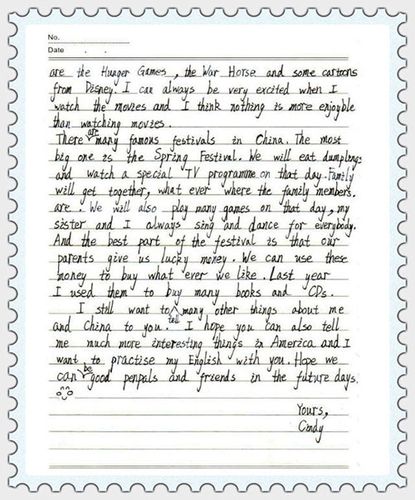 No.
Date . .
are the Hunger Games, the War Horse and some cartoons
from Disney. I can always be very excited when I
watch the movies and I think nothing is more enjoyble
than watching movies.
There are many famous festivals in China. The most
big one is the Spring Festival. We will eat dumplings
and watch a special TV programme on that day. Family
will get together, what ever where the family members
are. We will also play many games on that day, my
sister and I always sing and dance for everybody.
And the best part of the festival is that our
parents give us lucky money. We can use these
money to buy what ever we like. Last year
I used them to buy many books and CDs.
I still want to tell many other things about me
and China to you. I hope you can also tell
me much more interesting things in America and I
want to practise my English with you. Hope we
can be good penpals and friends in the future days.
Yours,
Cindy